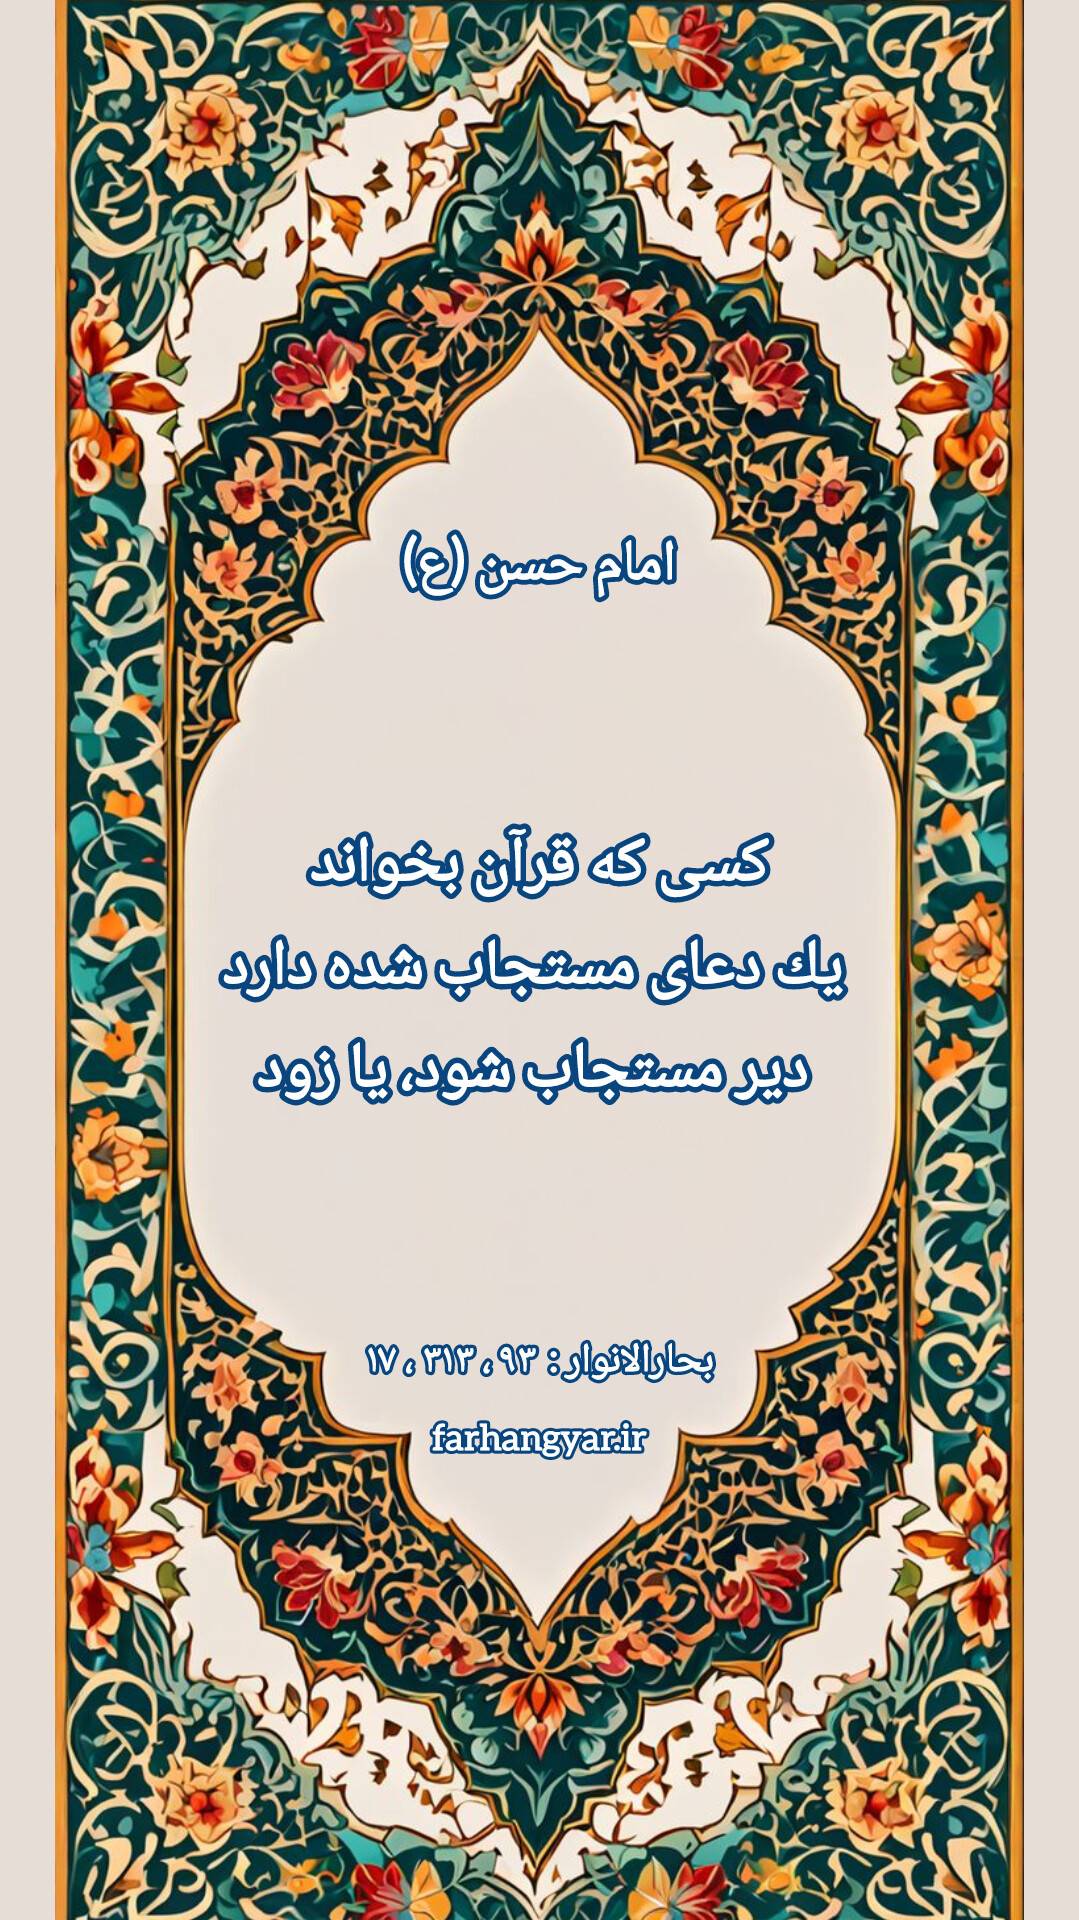 امام حسن (ع)
کسی که قرآن بخواند
یك دعای مستجاب شده دارد
دیر مستجاب شود، یا زود
بحارالانوار: ۹۳ ، ۳۱۳ ، ۱۷
farhangyar.ir